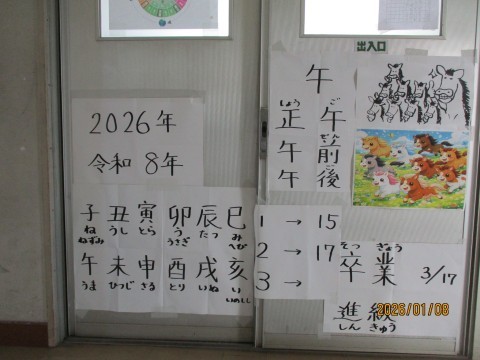 出入口
2026年
令和 8年
子 丑 寅 卯 辰 巳
ね うし とら う たつ み
ねずみ うさぎ へび
午 未 申 酉 戌 亥
うま ひつじ さる とり いぬ い
いのしし
午
しょう ご
正 午
ぜん
午 前
ご
午 後
1 → 15
2 → 17
3 →
そつ ぎょう
卒 業 3/17
進 級
しん きゅう
2026/01/08